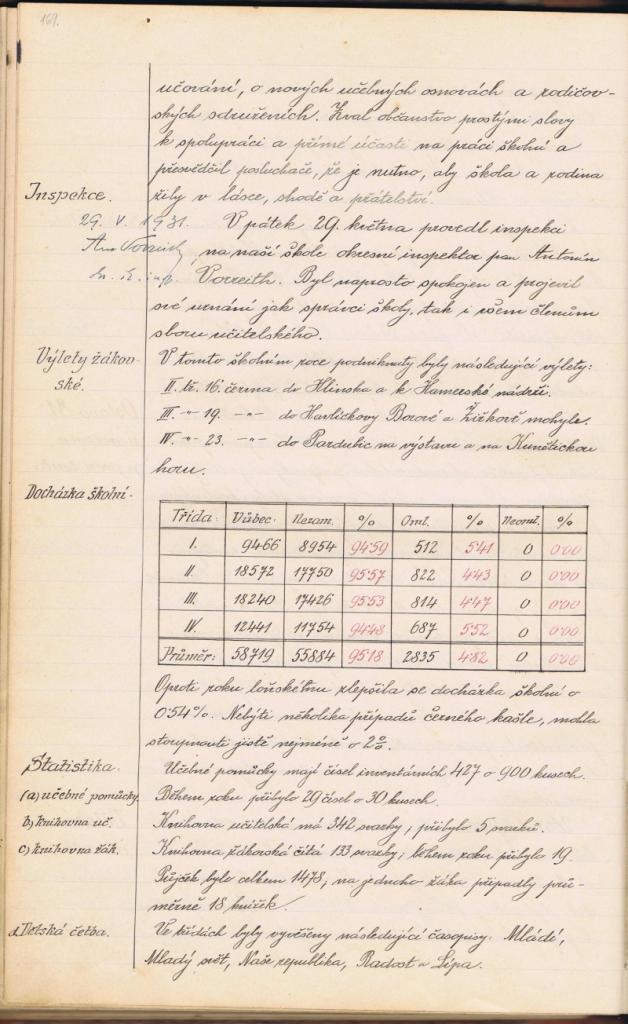 169.
učování, o nových učebných osnovách a rodičov-
ských sdruženích. Zval občanstvo prostými slovy
k spolupráci a přímé účasti na práci školní a
přesvědčil posluchače, že je nutno, aby škola a rodina
žily v lásce, shodě a přátelství.
Inspekce.
29. V. 1931.
V pátek 29. května provedl inspekci
na naší škole okresní inspektor pan Antonín
Vorreith. Byl naprosto spokojen a projevil
své uznání jak správci školy, tak i všem členům
sboru učitelského.
Výlety žákov-
ské.
V tomto školním roce podniknuty byly následující výlety:
II. tř. 16. června do Hlinska a k Hamerské nádrži.
III -"- 19. -"- do Havlíčkovy Borové a Žižkově mohyle.
IV. -"- 23. -"- do Pardubic na výstavu a na Kunětickou
horu.
Docházka školní.
Třída: Vůbec: Nezam. % Oml. % Neoml. %
I. 9466 8954 94·59 512 5·41 0 0·00
II. 18572 17750 95·57 822 4·43 0 0·00
III. 18240 17426 95·53 814 4·47 0 0·00
IV. 12441 11754 94·48 687 5·52 0 0·00
Průměr: 58719 55884 95·18 2835 4·82 0 0·00
Oproti roku loňskému zlepšila se docházka školní o
0·54%. Nebýti několika případů černého kašle, mohla
stoupnouti jistě nejméně o 2%.
Statistika.
Učebné pomůcky mají čísel inventárních 427 o 900 kusech.
(a) učebné pomůcky
Během roku přibylo 29 čísel o 30 kusech.
b) knihovna uč.
Knihovna učitelská má 342 svazky; přibylo 5 svazků.
c) knihovna žák.
Knihovna žákovská čítá 133 svazky; během roku přibylo 19.
Půjček bylo celkem 1478; na jednoho žáka připadly prů-
měrně 18 knížek.
d. Dětská četba.
Ve třídách byly vyvěšeny následující časopisy: Mládí,
Mladý svět, Naše republika, Radost a Lípa.